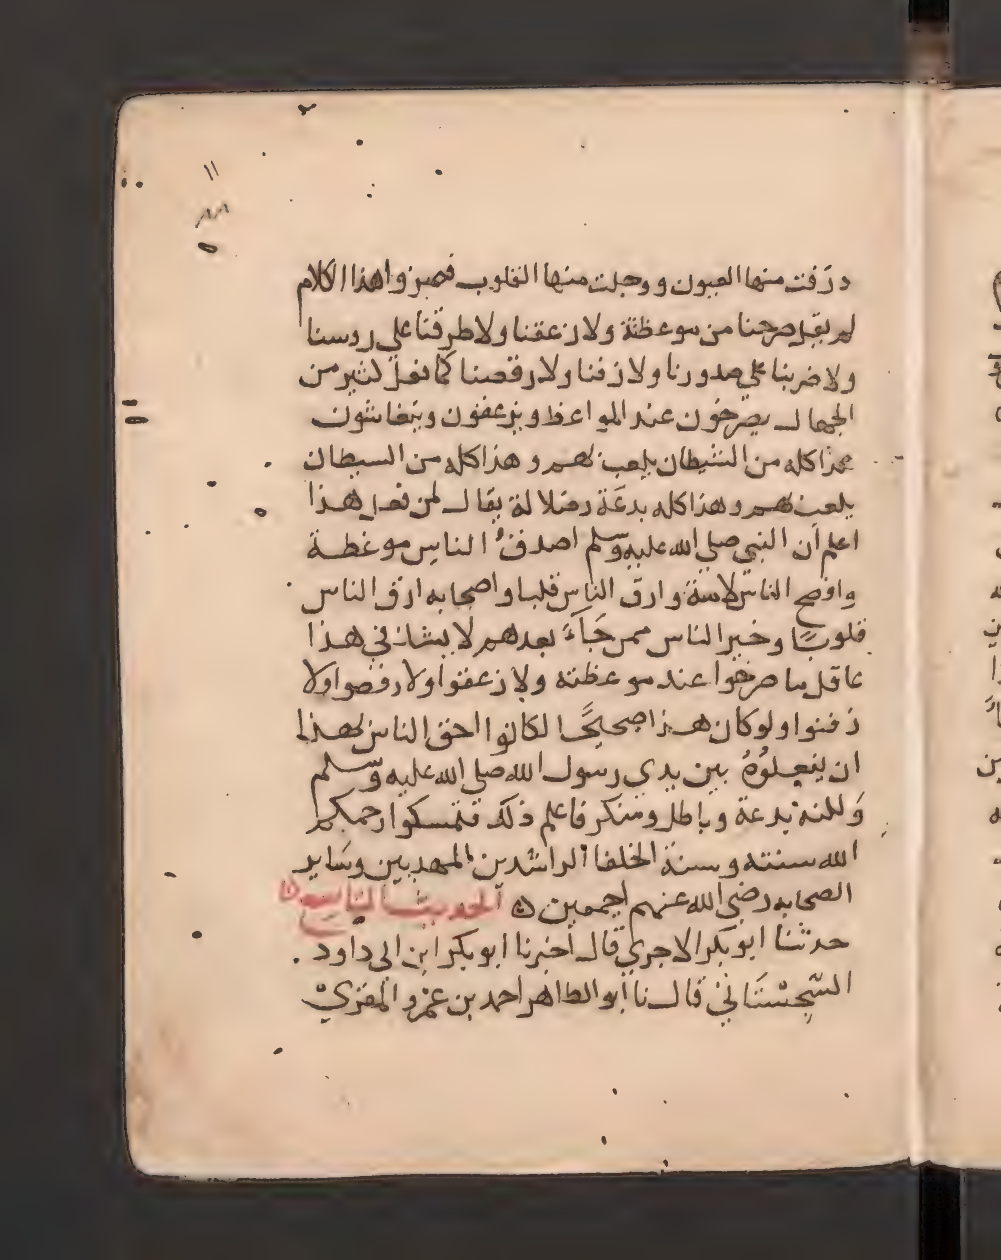 ١١
ذرفت منها العيون ووجلت منها القلوب فميزوا هذا الكلام
لم يقل صرخنا من موعظة ولا زعقنا ولا طرقنا على روسنا
ولا ضربنا على صدورنا ولا زفنا ولا رقصنا كما يفعل كثير من
الجهال يصرخون عند المواعظ ويزعقون ويتغاشون
هذا كله من الشيطان يلعب بهم وهذا كله من الشيطان
يلعب بهم وهذا كله بدعة وضلالة يقال لمن فعل هذا
اعلم أن النبي صلى الله عليه وسلم اصدق الناس موعظة
وانصح الناس لامته وارق الناس قلبا واصحابه ارق الناس
قلوبًا وخير الناس ممن جَآءَ بعدهم لا يشك في هذا
عاقل ما صرخوا عند موعظته ولا زعقوا ولا رقصوا ولا
زفنوا ولو كان هذا صحيحًا لكانوا احق الناس بهذا
ان يفعلوُهُ بين يدي رسول الله صلى الله عليه وسلم
وَلكنه بدعة وباطل ومنكر فاعلم ذلك فتمسكوا رحمكم
الله سنته وسنة الخلفا الراشدين المهديين وسَاير
الصحابه رضي الله عنهم اجمعين ۞ الحديث التاسع
حدثنا ابو بكر الاجري قال أخبرنا ابو بكر ابن ابى داود
السّجِسْتَاني قال نا أبو الطاهر احمد بن عمرو المقري